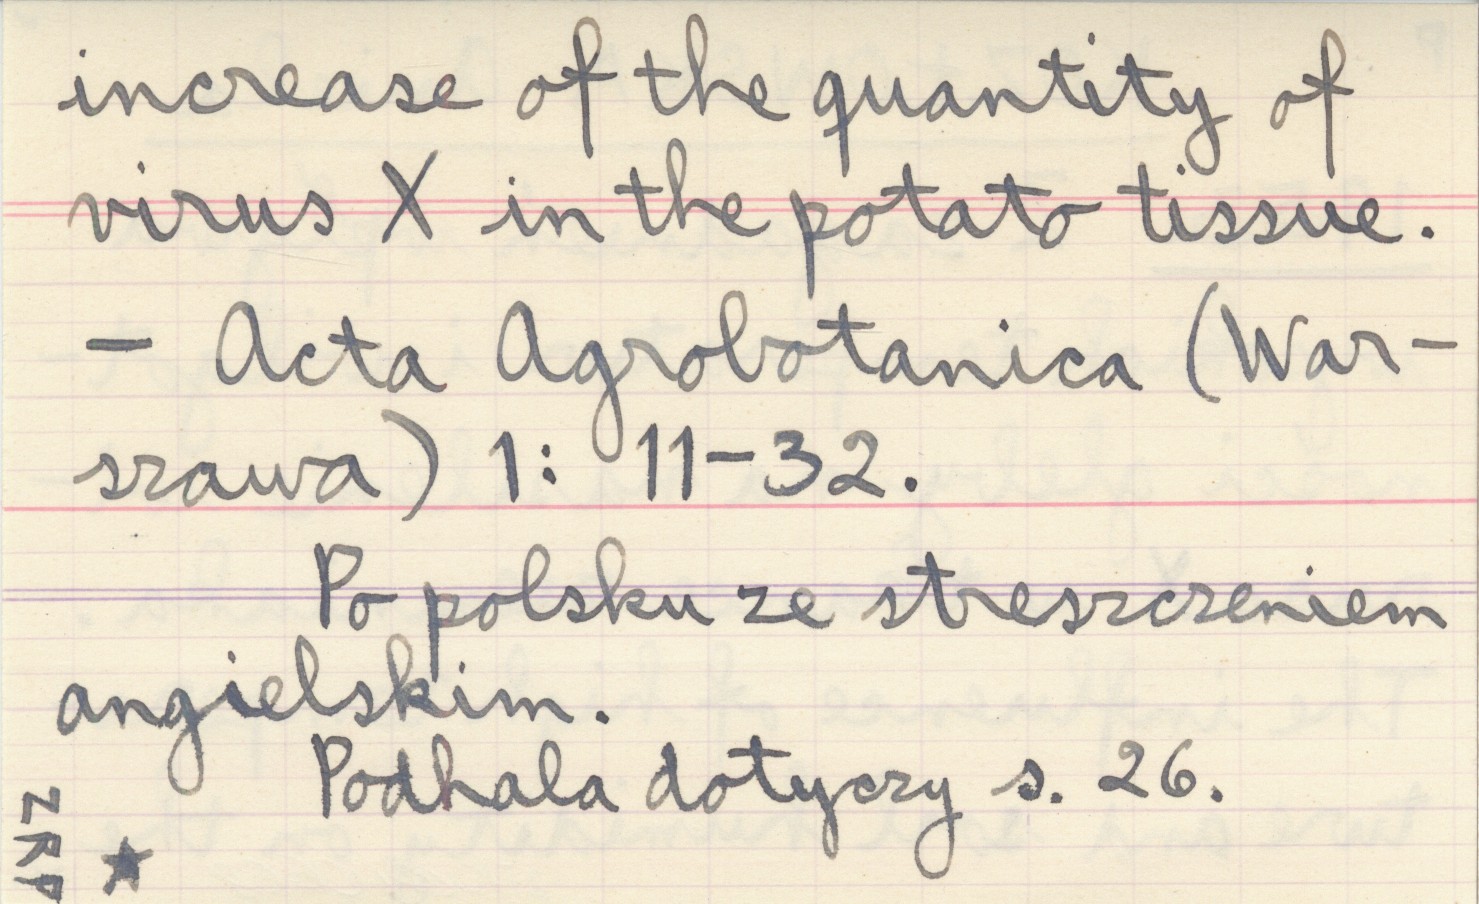 increase of the quantity of
virus X in the potato tissue.
- Acta Agrobotanica (War-
szawa) 1: 11-32.
Po polsku ze streszczeniem
angielskim.
Podhala dotyczy s. 26.
ZRP